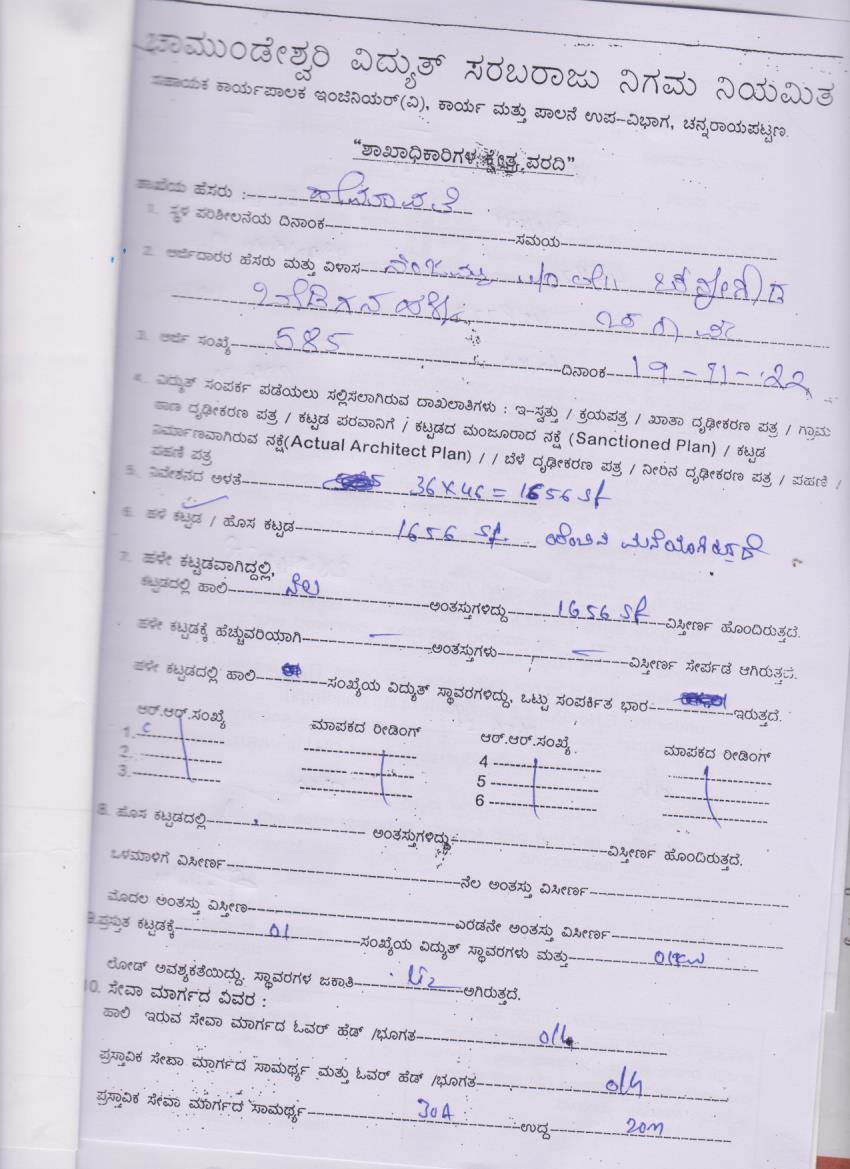 ಚಾಮುಂಡೇಶ್ವರಿ ವಿದ್ಯುತ್ ಸರಬರಾಜು ನಿಗಮ ನಿಯಮಿತ
ಸಹಾಯಕ ಕಾರ್ಯಪಾಲಕ ಇಂಜಿನಿಯರ್(ವಿ), ಕಾರ್ಯ ಮತ್ತು ಪಾಲನೆ ಉಪ-ವಿಭಾಗ, ಚನ್ನರಾಯಪಟ್ಟಣ
"ಶಾಖಾಧಿಕಾರಿಗಳ ಕ್ಷೇತ್ರ ವರದಿ"
ಶಾಖೆಯ ಹೆಸರು :
1. ಸ್ಥಳ ಪರಿಶೀಲನೆಯ ದಿನಾಂಕ ಸಮಯ
2. ಅರ್ಜಿದಾರರ ಹೆಸರು ಮತ್ತು ವಿಳಾಸ
3. ಅರ್ಜಿ ಸಂಖ್ಯೆ 585 ದಿನಾಂಕ 19-11-22
4. ವಿದ್ಯುತ್ ಸಂಪರ್ಕ ಪಡೆಯಲು ಸಲ್ಲಿಸಲಾಗಿರುವ ದಾಖಲಾತಿಗಳು : ಇ-ಸ್ವತ್ತು / ಕ್ರಯಪತ್ರ / ಖಾತಾ ದೃಢೀಕರಣ ಪತ್ರ / ಗ್ರಾಮ
ಠಾಣ ದೃಢೀಕರಣ ಪತ್ರ / ಕಟ್ಟಡ ಪರವಾನಿಗೆ / ಕಟ್ಟಡದ ಮಂಜೂರಾದ ನಕ್ಷೆ (Sanctioned Plan) / ಕಟ್ಟಡ
ನಿರ್ಮಾಣವಾಗಿರುವ ನಕ್ಷೆ(Actual Architect Plan) / / ಬೆಳೆ ದೃಢೀಕರಣ ಪತ್ರ / ನೀರಿನ ದೃಢೀಕರಣ ಪತ್ರ / ಪಹಣಿ /
ಪಹಣಿ ಪತ್ರ
5. ನಿವೇಶನದ ಅಳತೆ 36X46 = 1656 sf
6. ಹಳೆ ಕಟ್ಟಡ / ಹೊಸ ಕಟ್ಟಡ 1656 sf. ಹೆಂಚಿನ ಮನೆಯಾಗಿರುತ್ತದೆ
7. ಹಳೇ ಕಟ್ಟಡವಾಗಿದ್ದಲ್ಲಿ,
ಕಟ್ಟಡದಲ್ಲಿ ಹಾಲಿ ನೆಲ ಅಂತಸ್ತುಗಳಿದ್ದು 1656 sf ವಿಸ್ತೀರ್ಣ ಹೊಂದಿರುತ್ತದೆ.
ಹಳೇ ಕಟ್ಟಡಕ್ಕೆ ಹೆಚ್ಚುವರಿಯಾಗಿ — ಅಂತಸ್ತುಗಳು — ವಿಸ್ತೀರ್ಣ ಸೇರ್ಪಡೆ ಆಗಿರುತ್ತವೆ.
ಹಳೇ ಕಟ್ಟಡದಲ್ಲಿ ಹಾಲಿ ಸಂಖ್ಯೆಯ ವಿದ್ಯುತ್ ಸ್ಥಾವರಗಳಿದ್ದು, ಒಟ್ಟು ಸಂಪರ್ಕಿತ ಭಾರ ಇರುತ್ತದೆ.
ಆರ್.ಆರ್.ಸಂಖ್ಯೆ ಮಾಪಕದ ರೀಡಿಂಗ್ ಆರ್.ಆರ್.ಸಂಖ್ಯೆ ಮಾಪಕದ ರೀಡಿಂಗ್
1. 4
2. 5
3. 6
8. ಹೊಸ ಕಟ್ಟಡದಲ್ಲಿ ಅಂತಸ್ತುಗಳಿದ್ದು ವಿಸ್ತೀರ್ಣ ಹೊಂದಿರುತ್ತದೆ.
ಒಳಮಾಳಿಗೆ ವಿಸೀರ್ಣ ನೆಲ ಅಂತಸ್ತು ವಿಸೀರ್ಣ
ಮೊದಲ ಅಂತಸ್ತು ವಿಸ್ತೀಣ ಎರಡನೇ ಅಂತಸ್ತು ವಿಸೀರ್ಣ
9.ಪ್ರಸ್ತುತ ಕಟ್ಟಡಕ್ಕೆ 01 ಸಂಖ್ಯೆಯ ವಿದ್ಯುತ್ ಸ್ಥಾವರಗಳು ಮತ್ತು
ಲೋಡ್ ಅವಶ್ಯಕತೆಯಿದ್ದು, ಸ್ಥಾವರಗಳ ಜಕಾತಿ ಆಗಿರುತ್ತದೆ.
10. ಸೇವಾ ಮಾರ್ಗದ ವಿವರ :
ಹಾಲಿ ಇರುವ ಸೇವಾ ಮಾರ್ಗದ ಓವರ್ ಹೆಡ್ /ಭೂಗತ o/h
ಪ್ರಸ್ತಾವಿಕ ಸೇವಾ ಮಾರ್ಗದ ಸಾಮರ್ಥ್ಯ ಮತ್ತು ಓವರ್ ಹೆಡ್ /ಭೂಗತ o/h
ಪ್ರಸ್ತಾವಿಕ ಸೇವಾ ಮಾರ್ಗದ ಸಾಮರ್ಥ್ಯ 30A ಉದ್ದ 20m